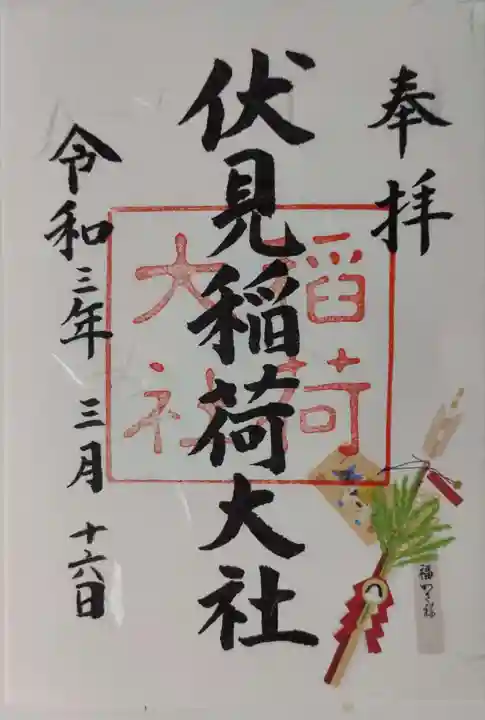 奉拝
伏見稲荷大社
稲荷
大社
令和三年 三月 十六日